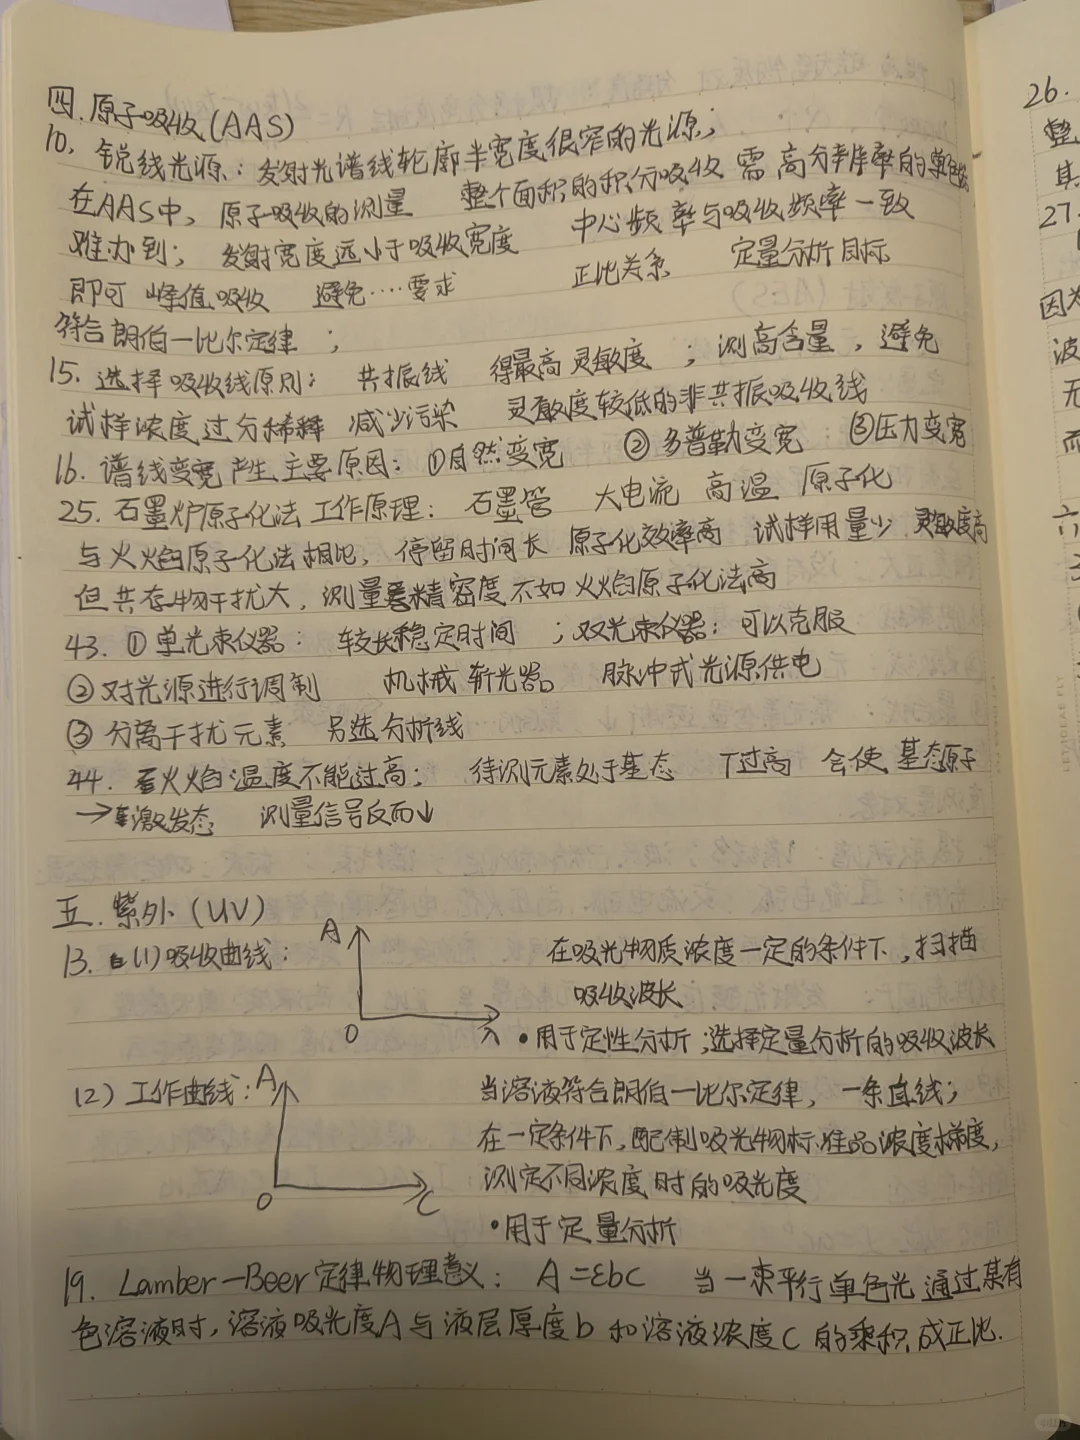 四. 原子吸收(AAS)
10. 锐线光源: 发射光谱线轮廓半宽度很窄的光源;
在AAS中, 原子吸收的测量 整个面积的积分吸收 需 高分辨率的单色器
难办到; 发射宽度远小于吸收宽度 中心频率与吸收频率一致
即可 峰值吸收 避免····要求 正比关系 定量分析目标
符合朗伯—比尔定律 ;
15. 选择吸收线原则: 共振线 得最高灵敏度 ; 测高含量 , 避免
试样浓度过分稀释 减少污染 灵敏度较低的非共振吸收线
16. 谱线变宽产生主要原因: ①自然变宽 ②多普勒变宽 ③压力变宽
25. 石墨炉原子化法工作原理: 石墨管 大电流 高温 原子化
与火焰原子化法相比, 停留时间长 原子化效率高 试样用量少 灵敏度高
但共存物干扰大, 测量精密度不如火焰原子化法高
43. ①单光束仪器: 较长稳定时间 ; 双光束仪器: 可以克服
②对光源进行调制 机械斩光器。 脉冲式光源供电
③分离干扰元素 另选分析线
44. 火焰温度不能过高; 待测元素处于基态 T过高 会使基态原子
→激发态 测量信号反而↓
五. 紫外(UV)
13. (1)吸收曲线:
A
O
λ
在吸光物质浓度一定的条件下, 扫描
吸收波长
•用于定性分析; 选择定量分析的吸收波长
(2)工作曲线:
A
O
C
当溶液符合朗伯—比尔定律, 一条直线;
在一定条件下, 配制吸光物标准品浓度梯度,
测定不同浓度时的吸光度
•用于定量分析
19. Lamber—Beer定律物理意义: A=εbC 当一束平行单色光通过某有
色溶液时, 溶液吸光度A与液层厚度b和溶液浓度C的乘积成正比.
26.
整
其
27.
因为
波
无
而
六